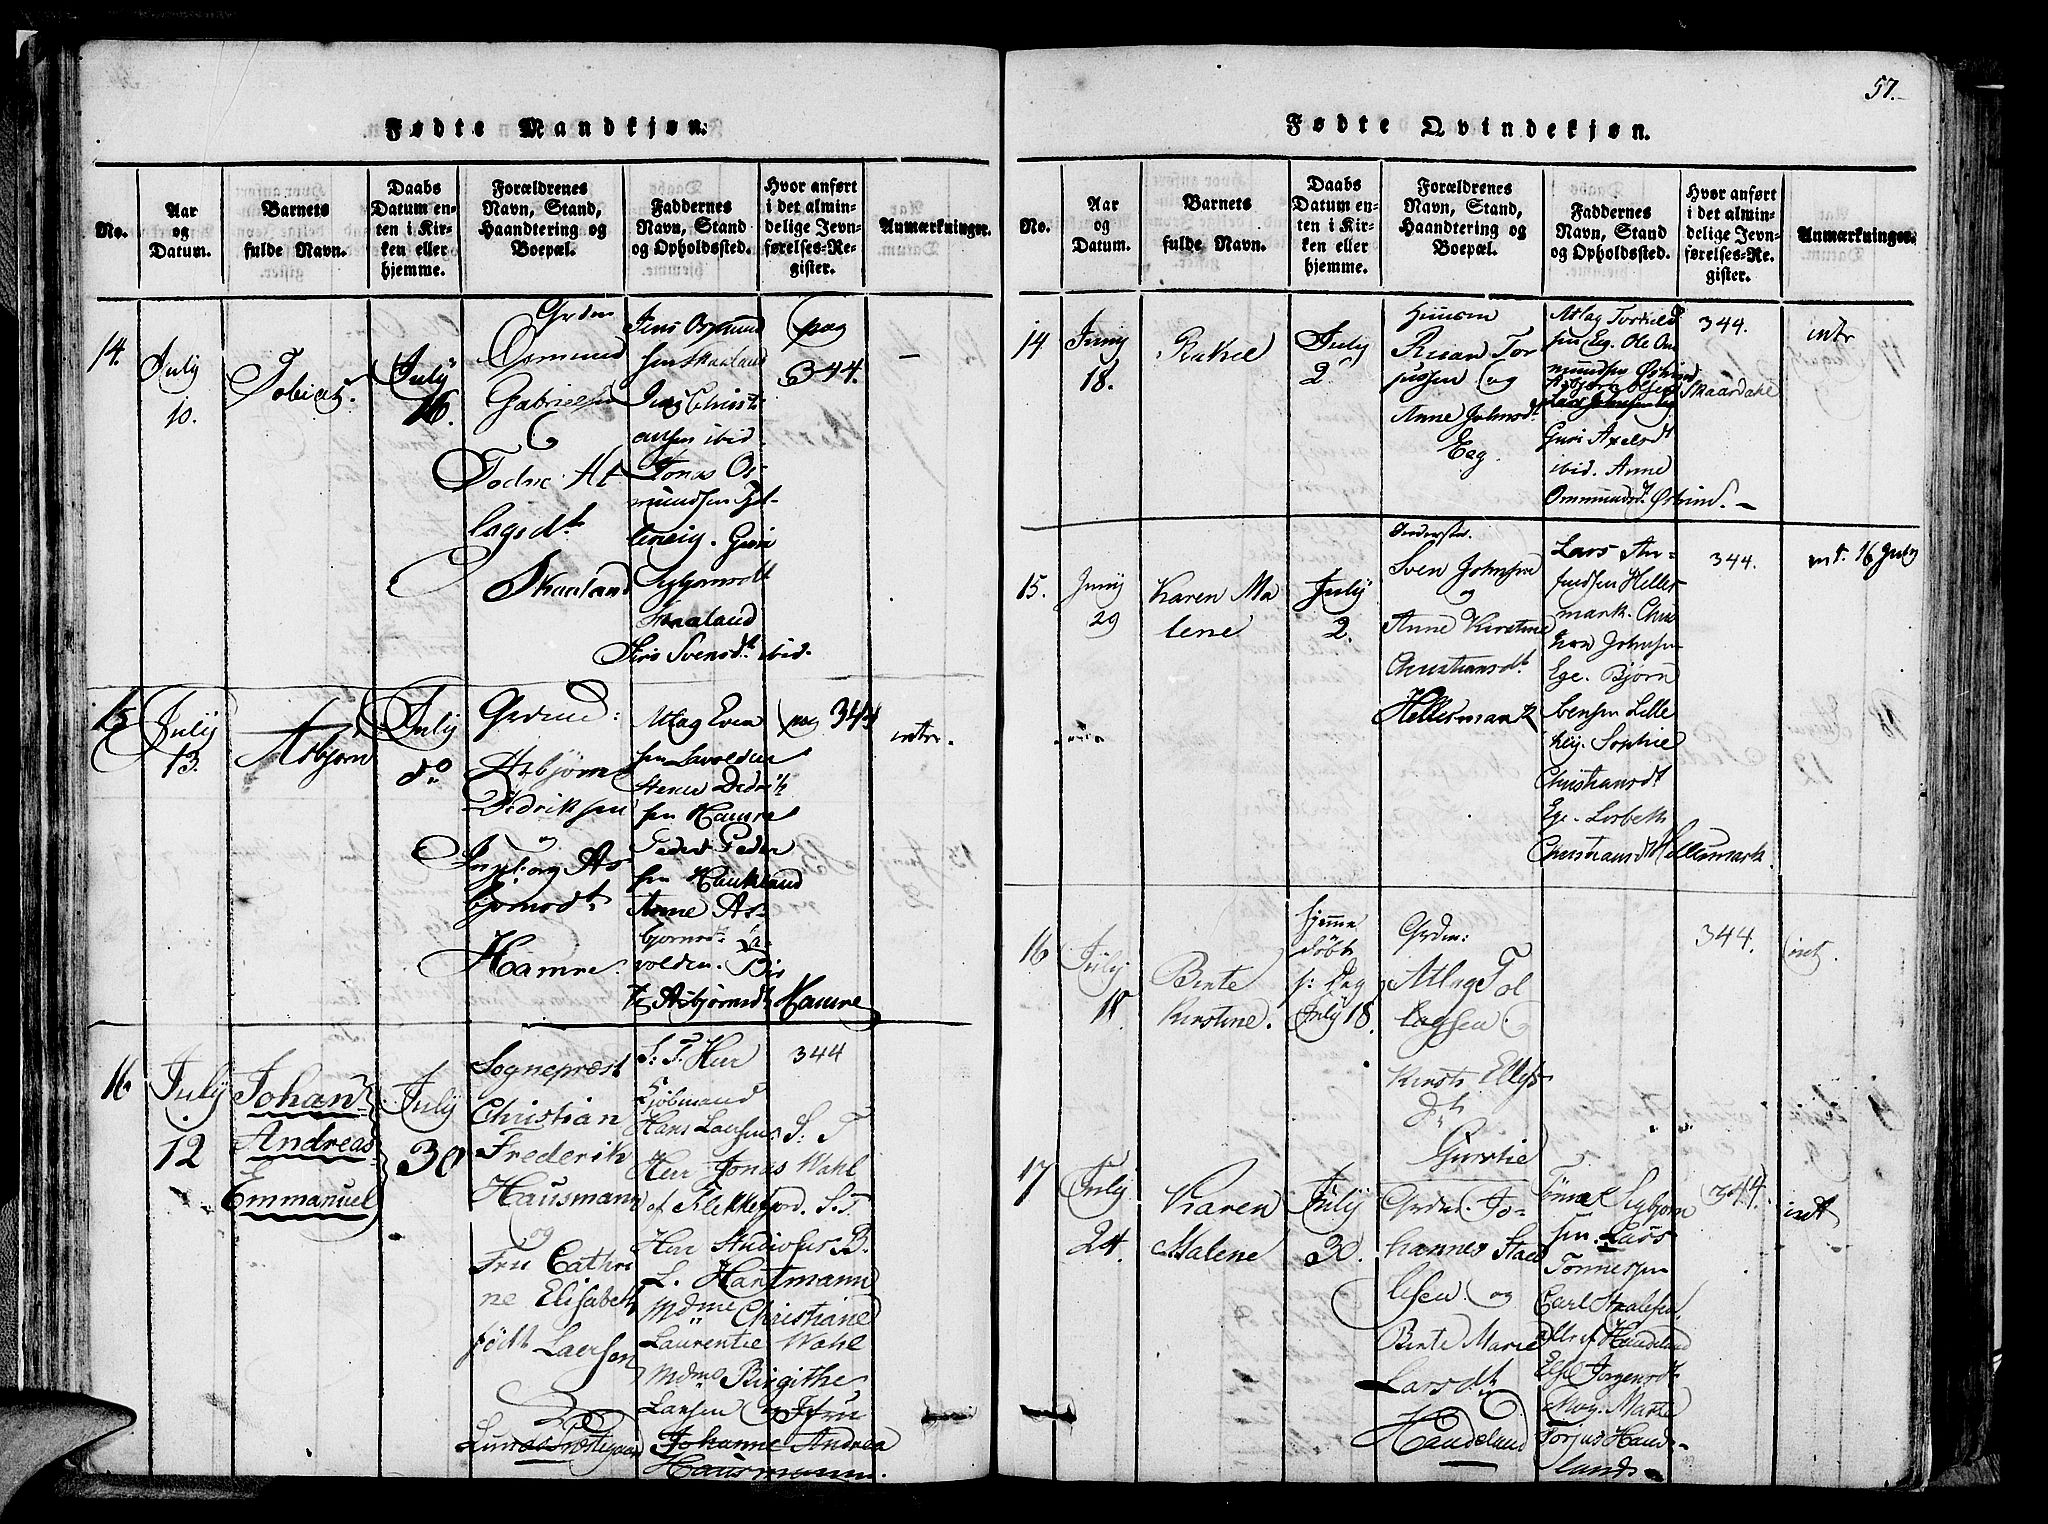 57.
Fødte Mandkjøn.
No.
Aar
og
Datum.
Barnets
fulde Navn.
Daabs
Datum en-
ten i Kir-
ken eller
hjemme.
Forældrenes
Navn, Stand,
Haandtering og
Boepæl.
Faddernes
Navn, Stand
og Opholdssted.
Hvor anført
i det almin-
delige Jevn-
førelses-Re-
gister.
Anmærkninger.
14.
July
10.
Tobias.
July
16.
Grdm
Osmund
Gabrielsen
Lagsdt
Skaaland
Jens Osmund
sen Skaaland
Christi
ansen ibid.
Jonas Os-
mundsen
Guri
Sybjørnsdt
Skaaland
Siri Svensdt ibid.
pag
344.
15
July
13.
Asbjørn
July
do
Grdm:
Asbjørn
Didriksen
og
Ingborg As
bjørnsdt
Hamre.
Atlag Even
sen Lavolden
Didrik
sen Hamre
Peder Peder
sen Haukland
Anne As-
bjørnsdt La-
volden.
Asbjørnsdt Hamre
pag 344
intr.
16
July
12
Johan
Andreas
Emmanuel
July
30
Sogneprest
Christian
Frederik
Hausmann
og
Fru Cathri
ne Elisabeth
født Laersen
Lunds Præstegaard
S: T. Herr
Kjøbmand
Hans Laersen S: T
Herr Jonas Wahl
af Flekkefiord. S. T.
Herr Studiosus B.
L. Hartmann
Mdme Christiane
Laurentie Wahl
Mdme Birgithe
Laersen og Jfru
Johanne Andrea
Hausmann.
344
Fødte Qvindekjøn.
No.
Aar
og
Datum.
Barnets
fulde Navn.
Daabs
Datum en-
ten i Kir-
ken eller
hjemme.
Forældrenes
Navn, Stand,
Haandtering og
Boepæl.
Faddernes
Navn, Stand
og Opholdssted.
Hvor anført
i det almin-
delige Jevn-
førelses-Re-
gister.
Anmærkninger.
14
Juny
18.
Rakel
July
2
Tor
jussen og
Anne Johnsdt
Eeg.
Atlag Torkild
sen Eeg. Ole Om
mundsen Østrind
Asbjørn Olsen
Skaardale
Guri Axelsdt
ibid. Anne
Ommundsdt Østrind.
344.
intr
15.
Juny
29
Karen Ma
lene
July
2.
Inderster.
Sven Johnsen
og
Anne Kirstine
Christiansdt
Hellesmark
Lars An-
findsen Helles
mark. Chri
Johnsen
Ege. Bjørn
Svensen Lille
Sophie
Christiansdt
Ege. Lisbeth
Christiansdt Hellesmark.
344.
int. 16 July
16
July
11.
Birte
Kirstine.
hjemme
døbt
s: Dag
July 18.
Grdm:
Atlag Tol
lagsen og
Kirsti Ellefs
dt
Gurstie
344.
int.
17
July
24.
Karen
Malene
July
30.
Grdm. Jo-
hannes Staa
lesen og
Birte Marie
Larsdt
Haaeland
Tønnes Sybjørn
sen. Lars
Tønnesen
Carl Staalesen
alle af Haaeland
Elsl Jørgensdt
Moy. Marte
Torjus Haae-
lands
344.
int